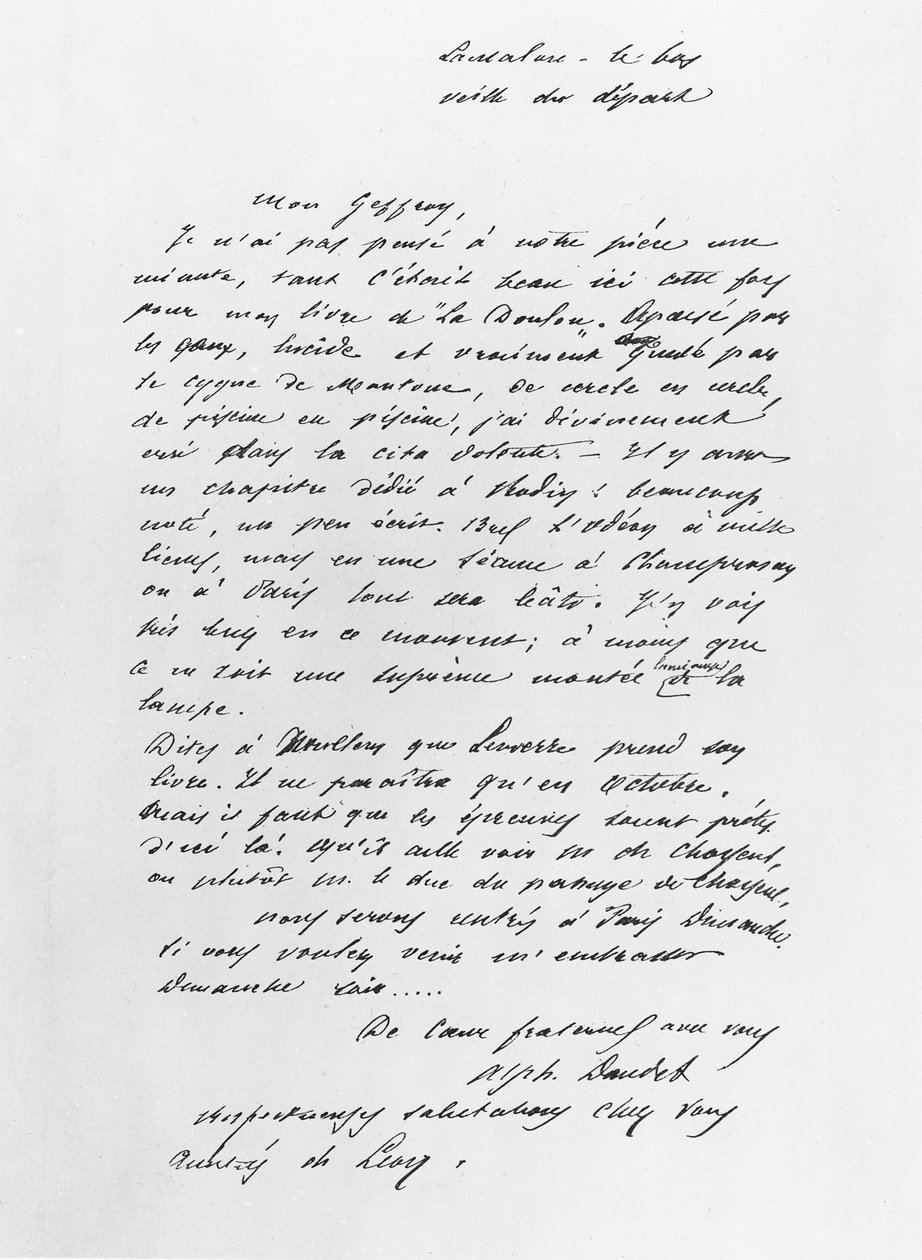 Lamalou - le bas
veille du départ
Mon Geffroy,
Je n'ai pas pensé à notre pièce une
minute, tant c'était beau ici cette fois
pour mon livre de "La Doulou". Apaisé par
les eaux, lucide et vraiment guidé par
le cygne de Mantoue, de cercle en cercle,
de piscine en piscine, j'ai divinement
erré dans la cita dolente. — Il y aura
un chapitre dédié à Rodin : beaucoup
noté, un peu écrit. Bref l'Odéon à mille
lieues, mais en une séance à Champrosay
ou à Paris tout sera bâti. J'y vois
très bien en ce moment ; à moins que
ce ne soit une suprême montée lumineuse de la
lampe.
Dites à que Lemerre prend son
livre. Il ne paraîtra qu'en Octobre.
Mais il faut que les épreuves soient prêtes
d'ici là. Qu'il aille voir M de Choiseul,
ou plutôt M. le duc du passage de Choiseul.
Nous serons rentrés à Paris Dimanche.
Si vous voulez venir m'embrasser
Dimanche soir.....
De cœur fraternel avec vous
Alph. Daudet
Respectueuses salutations chez vous
Amitiés de Léon.